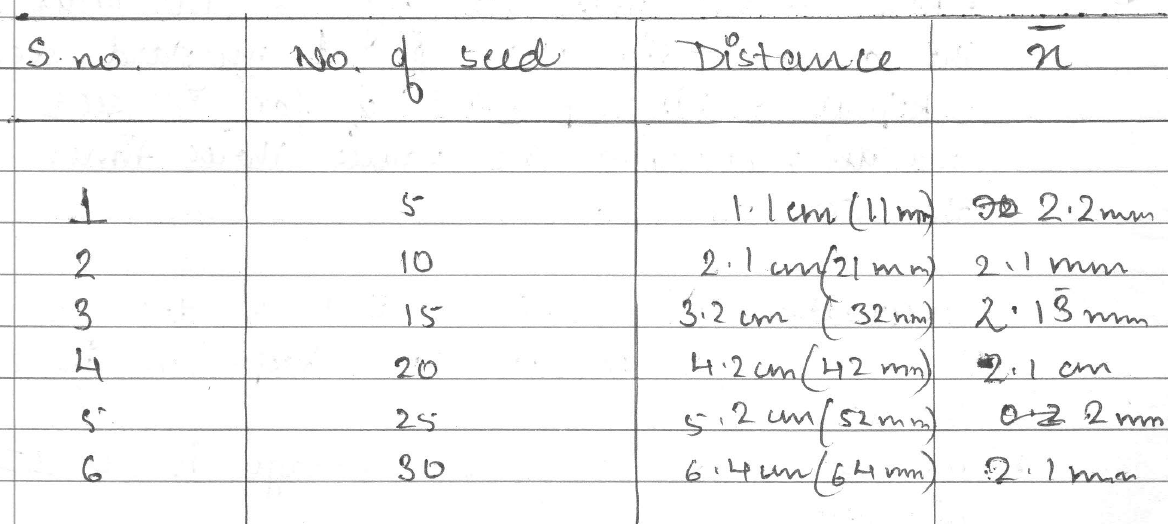 S.no. No. of seed Distance n̄
1 5 1.1cm (11mm) 2.2mm
2 10 2.1 cm (21 mm) 2.1 mm
3 15 3.2 cm (32mm) 2.13̄ mm
4 20 4.2cm (42 mm) 2.1 cm
5 25 5.2 cm (52mm) 2mm
6 30 6.4cm (64mm) 2.1mm